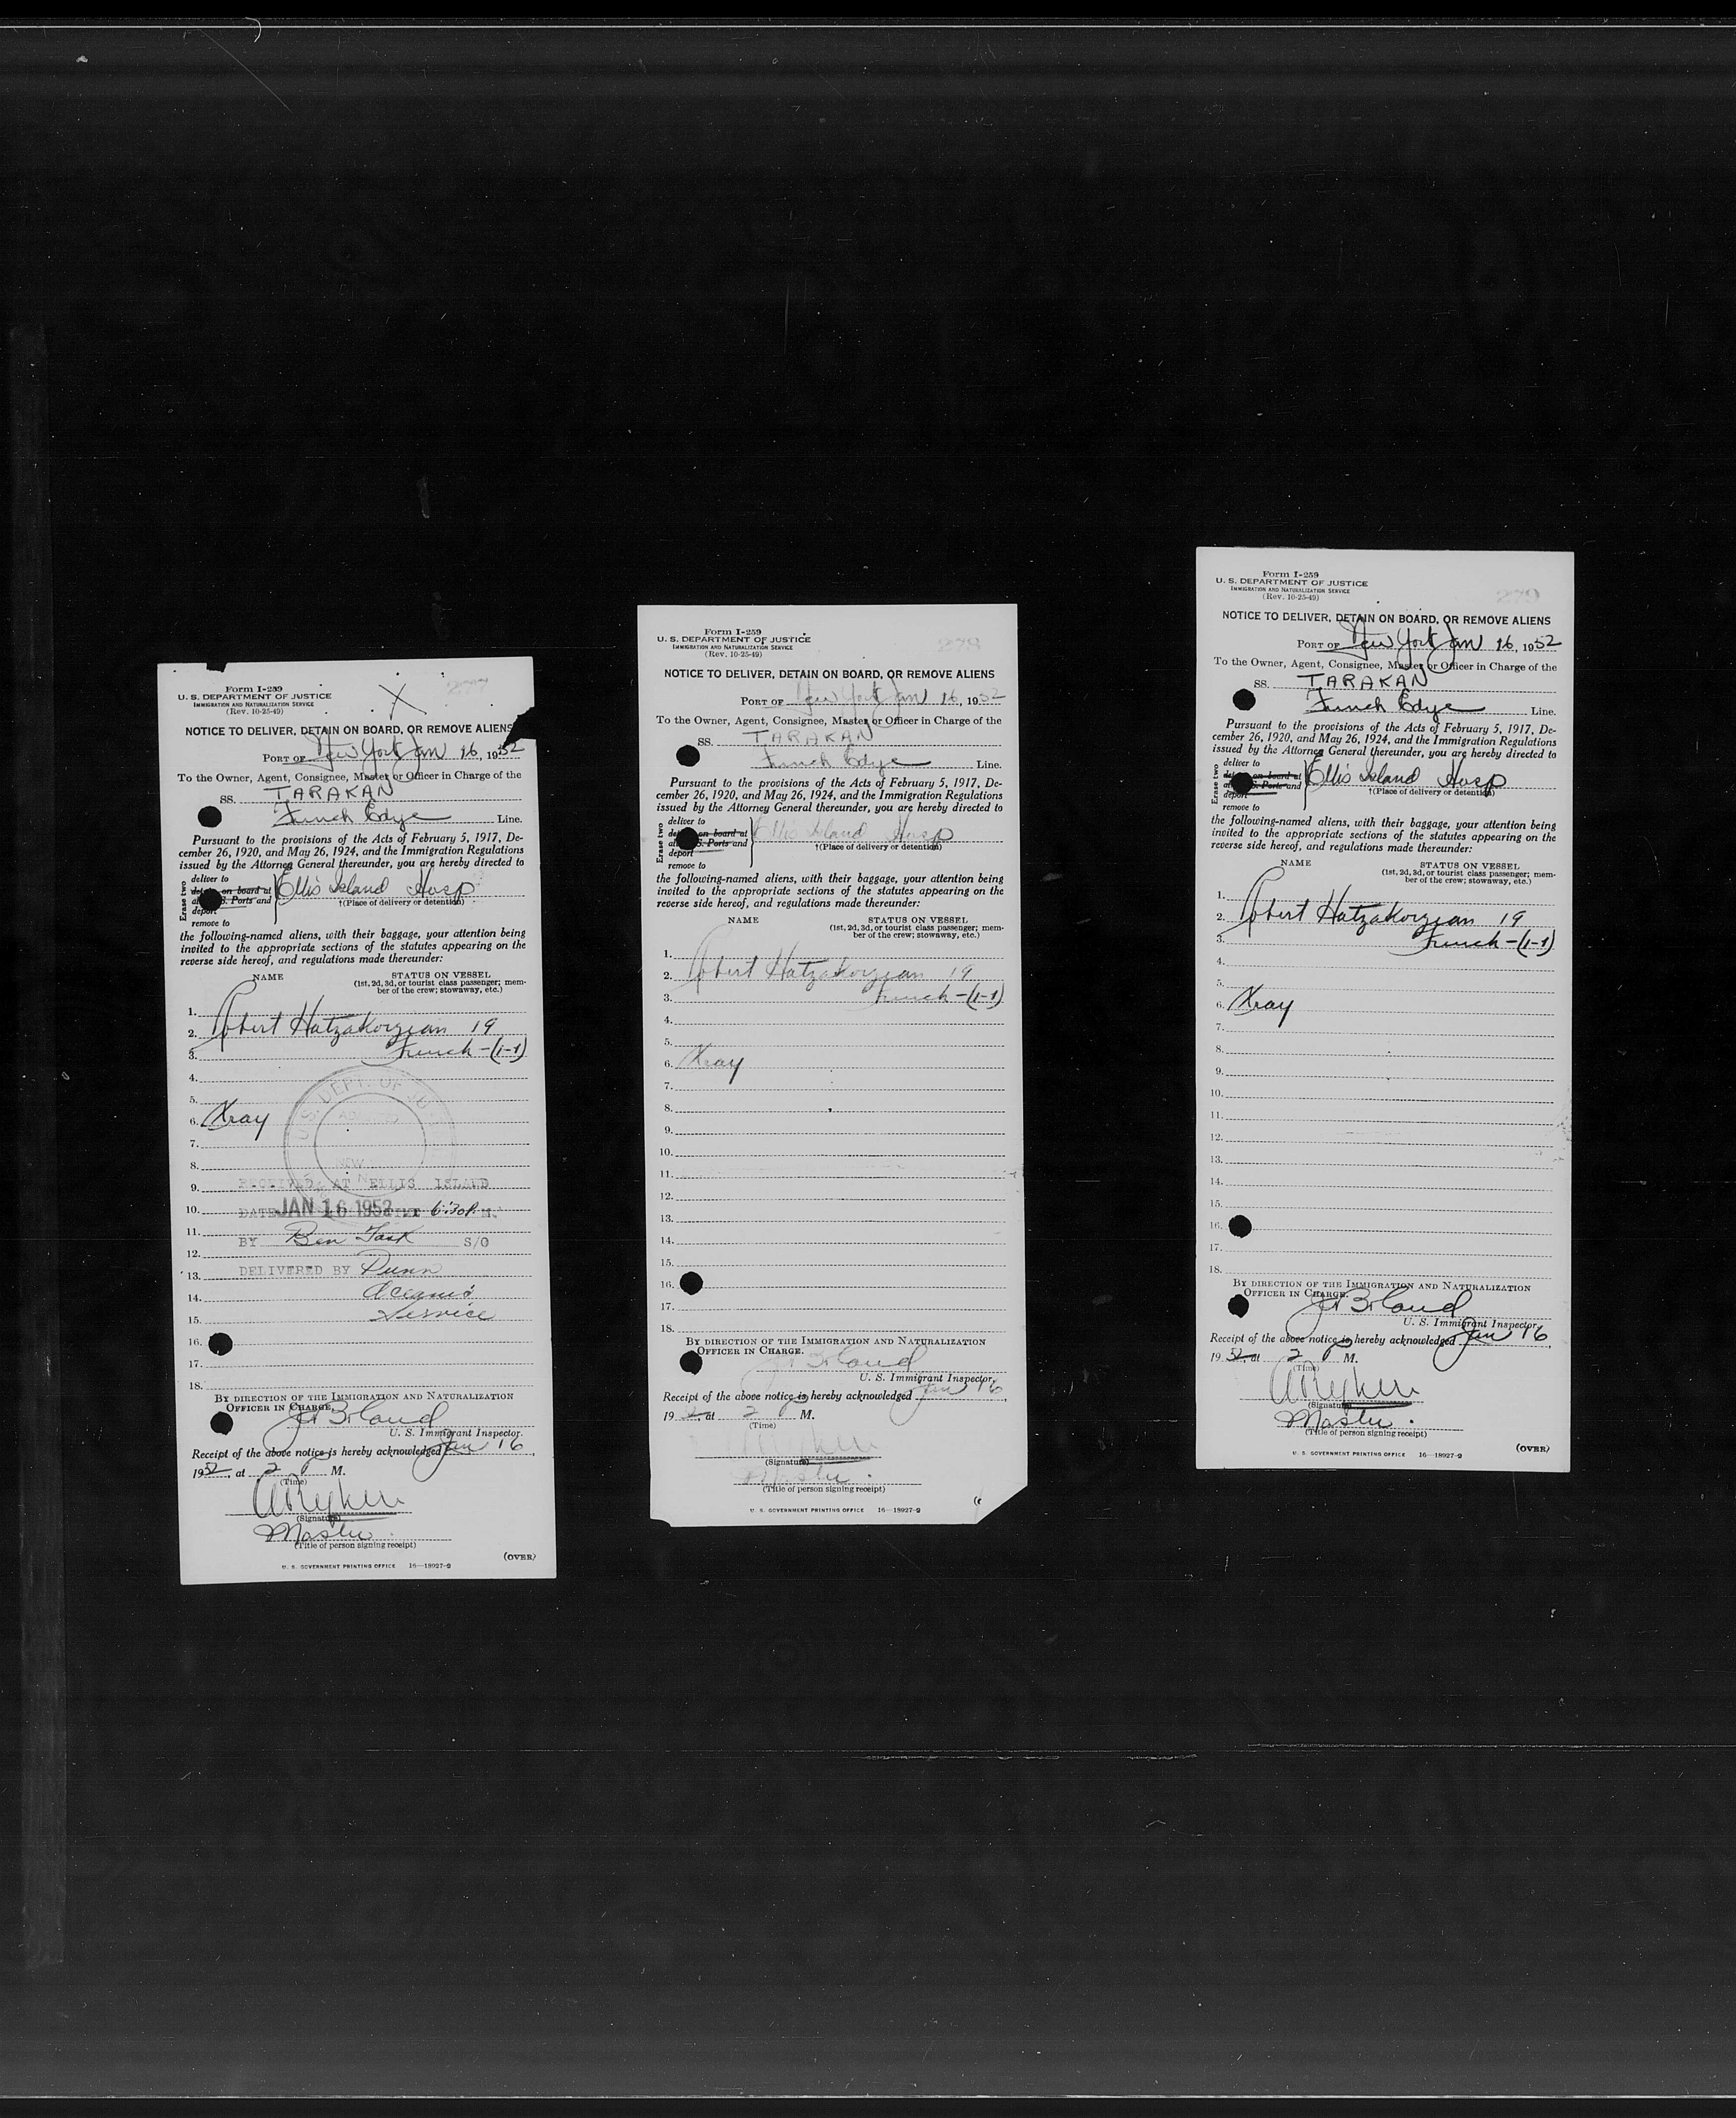 277
Form I-259
U. S. DEPARTMENT OF JUSTICE
IMMIGRATION AND NATURALIZATION SERVICE
(Rev. 10-25-49)
X
NOTICE TO DELIVER, DETAIN ON BOARD, OR REMOVE ALIENS
PORT OF New York Jan 16, 1952
To the Owner, Agent, Consignee, Master or Officer in Charge of the
SS. TARAKAN
Funch Edye Line.
Pursuant to the provisions of the Acts of February 5, 1917, De-
cember 26, 1920, and May 26, 1924, and the Immigration Regulations
issued by the Attorney General thereunder, you are hereby directed to
Erase two
deliver to
on board at
S. Ports and
deport
remove to
Ellis Island Hosp
†(Place of delivery or detention)
the following-named aliens, with their baggage, your attention being
invited to the appropriate sections of the statutes appearing on the
reverse side hereof, and regulations made thereunder:
NAME STATUS ON VESSEL
(1st, 2d, 3d, or tourist class passenger; mem-
ber of the crew; stowaway, etc.)
1.
2. Robert Hatzakorzian 19
3. French-(1-1)
4.
5.
6. Xray
7.
8.
9.
10.
11.
12.
13.
14.
15.
16.
17.
18.
U. S. DEPT. OF JU
RECEIVED AT ELLIS ISLAND
DATE JAN 16 1952 AT 6:30 P. M.
BY Ben Task S/O
DELIVERED BY Dunn
Oceanic
Service
BY DIRECTION OF THE IMMIGRATION AND NATURALIZATION
OFFICER IN CHARGE.
U. S. Immigrant Inspector.
Receipt of the above notice is hereby acknowledged Jan 16,
1952, at 2 P M.
(Time)
(Signature)
Master
(Title of person signing receipt)
(OVER)
U. S. GOVERNMENT PRINTING OFFICE 16—18927-9
278
Form I-259
U. S. DEPARTMENT OF JUSTICE
IMMIGRATION AND NATURALIZATION SERVICE
(Rev. 10-25-49)
NOTICE TO DELIVER, DETAIN ON BOARD, OR REMOVE ALIENS
PORT OF New York Jan 16, 1952
To the Owner, Agent, Consignee, Master or Officer in Charge of the
SS. TARAKAN
Funch Edye Line.
Pursuant to the provisions of the Acts of February 5, 1917, De-
cember 26, 1920, and May 26, 1924, and the Immigration Regulations
issued by the Attorney General thereunder, you are hereby directed to
Erase two
deliver to
on board at
S. Ports and
deport
remove to
Ellis Island Hosp
†(Place of delivery or detention)
the following-named aliens, with their baggage, your attention being
invited to the appropriate sections of the statutes appearing on the
reverse side hereof, and regulations made thereunder:
NAME STATUS ON VESSEL
(1st, 2d, 3d, or tourist class passenger; mem-
ber of the crew; stowaway, etc.)
1.
2. Robert Hatzakorzian 19
3. French-(1-1)
4.
5.
6. Xray
7.
8.
9.
10.
11.
12.
13.
14.
15.
16.
17.
18.
BY DIRECTION OF THE IMMIGRATION AND NATURALIZATION
OFFICER IN CHARGE.
U. S. Immigrant Inspector.
Receipt of the above notice is hereby acknowledged Jan 16,
1952, at 2 P M.
(Time)
(Signature)
Master
(Title of person signing receipt)
U. S. GOVERNMENT PRINTING OFFICE 16—18927-9
279
Form I-259
U. S. DEPARTMENT OF JUSTICE
IMMIGRATION AND NATURALIZATION SERVICE
(Rev. 10-25-49)
NOTICE TO DELIVER, DETAIN ON BOARD, OR REMOVE ALIENS
PORT OF New York Jan 16, 1952
To the Owner, Agent, Consignee, Master or Officer in Charge of the
SS. TARAKAN
Funch Edye Line.
Pursuant to the provisions of the Acts of February 5, 1917, De-
cember 26, 1920, and May 26, 1924, and the Immigration Regulations
issued by the Attorney General thereunder, you are hereby directed to
Erase two
deliver to
on board at
S. Ports and
deport
remove to
Ellis Island Hosp
†(Place of delivery or detention)
the following-named aliens, with their baggage, your attention being
invited to the appropriate sections of the statutes appearing on the
reverse side hereof, and regulations made thereunder:
NAME STATUS ON VESSEL
(1st, 2d, 3d, or tourist class passenger; mem-
ber of the crew; stowaway, etc.)
1.
2. Robert Hatzakorzian 19
3. French-(1-1)
4.
5.
6. Xray
7.
8.
9.
10.
11.
12.
13.
14.
15.
16.
17.
18.
BY DIRECTION OF THE IMMIGRATION AND NATURALIZATION
OFFICER IN CHARGE.
U. S. Immigrant Inspector.
Receipt of the above notice is hereby acknowledged Jan 16,
1952, at 2 P M.
(Time)
(Signature)
Master.
(Title of person signing receipt)
(OVER)
U. S. GOVERNMENT PRINTING OFFICE 16—18927-9